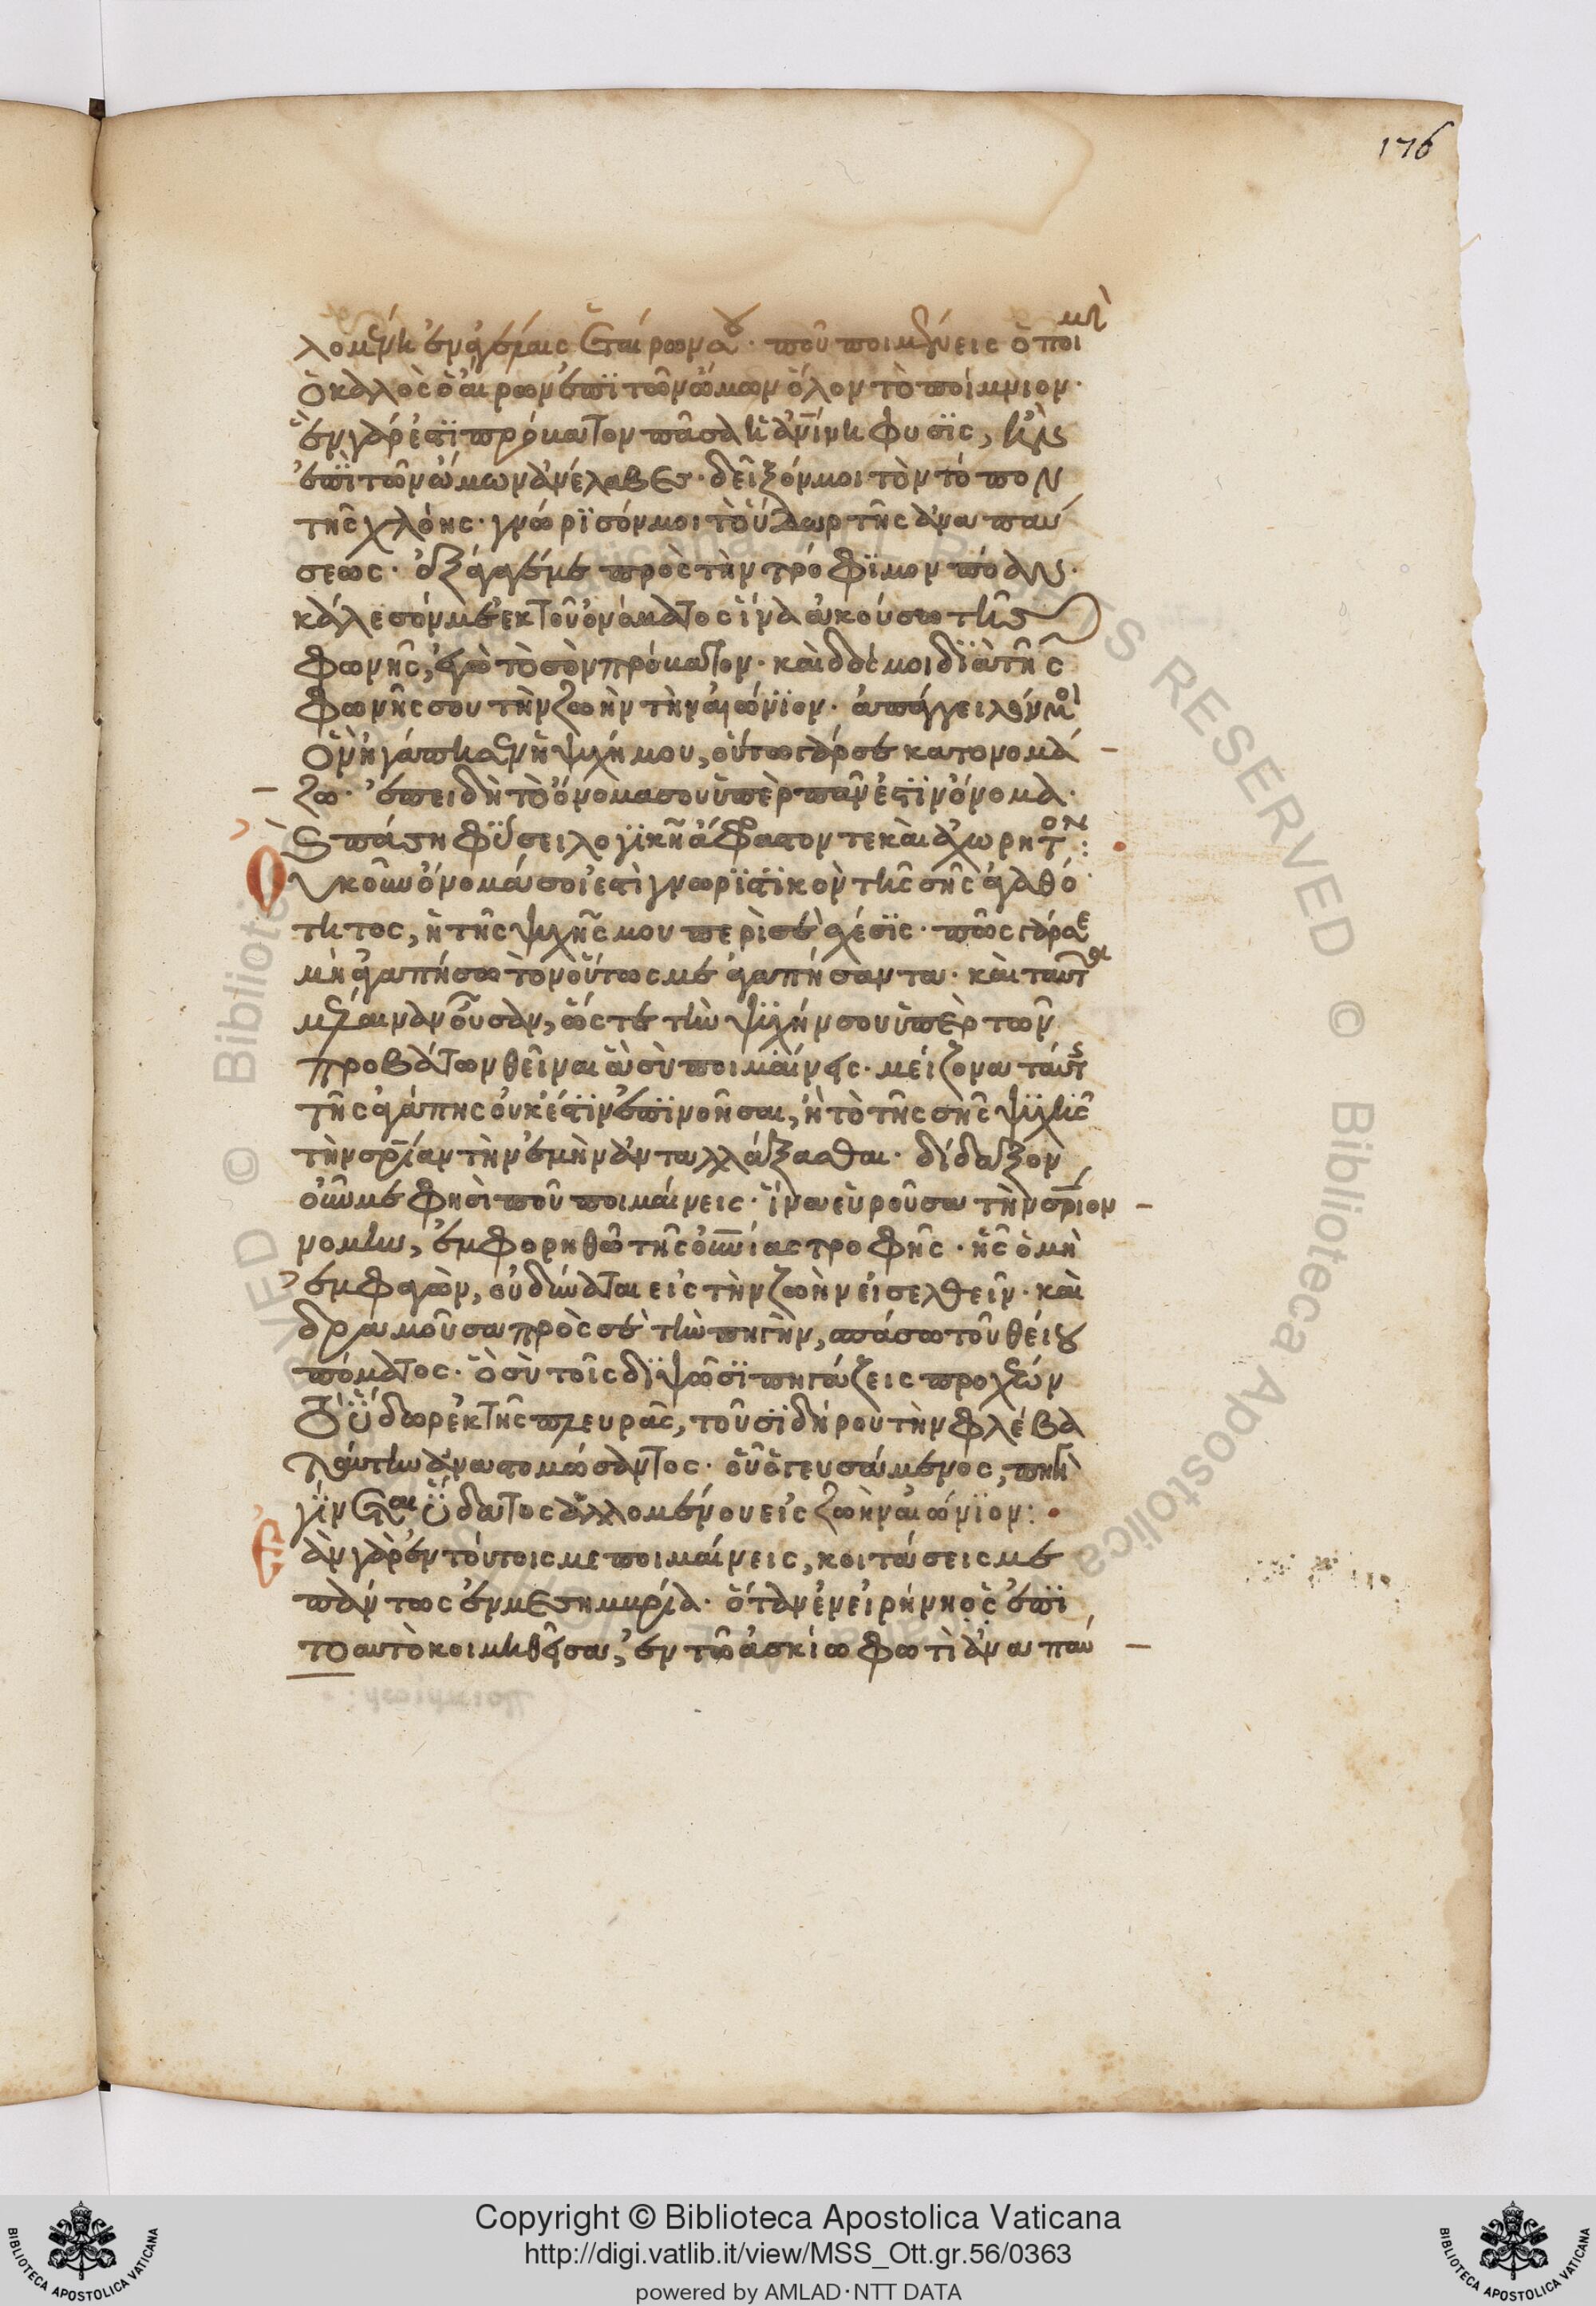 176
λομένη ἐν ἀγέλαις ἑταίρων σου· ποῦ ποιμαίνεις ὁ ποιμὴ
ὁ καλὸς ὁ αἴρων ἐπὶ τῶν ὤμων ὅλον τὸ ποίμνιον·
ἓν γάρ ἐστι πρόβατον πᾶσα ἡ ἀνίνη φύσις, ἣν
ἐπὶ τῶν ὤμων ἀνέλαβες· δεῖξόν μοι τὸν τόπον
τῆς χλόης· γνώρισόν μοι τὸ ὕδωρ τῆς ἀναπαύ
σεως· ἐξάγαγέ με πρὸς τὴν τρόφιμον πόαν·
κάλεσόν με ἐκ τοῦ ὀνόματος ἵνα ἀκούσω τῆς
φωνῆς, ἐγὼ τὸ σὸν πρόβατον· καὶ δός μοι διὰ τῆς
φωνῆς σου τὴν ζωὴν τὴν αἰώνιον· ἀπάγγειλόν μοι
ὃν ἠγάπησεν ἡ ψυχή μου, οὕτω γάρ σε κατονομά
ζω· ἐπειδὴ τὸ ὄνομά σου ὑπὲρ πᾶν ἐστιν ὄνομα·
ς πάση φύσει λογικῆ ἄφραστον τε καὶ ἀχώρητον:
Οὐκοῦν ὄνομά σοι ἐστὶ γνωριστικὸν τῆς σῆς ἀγαθό
τητος, ἡ τῆς ψυχῆς μου περὶ σὲ σχέσις· πῶς γάρ σε
μὴ ἀγαπήσω τὸν οὕτως με ἀγαπήσαντα· καὶ ταῦτα
μέλαιναν οὖσαν, ὥστε τὴν ψυχήν σου ὑπὲρ τῶν
προβάτων θεῖναι ἃ σὺ ποιμαίνεις· μείζονα ταύτης
τῆς ἀγάπης οὐκ ἔστιν ἐπινοῆσαι, ἢ τὸ τῆς σῆς ψυχῆς
τὴν σρίαν τὴν ἐμὴν ἀνταλλάξασθαι· δίδαξον
οὖν με φησὶ ποῦ ποιμαίνεις· ἵνα εὑροῦσα τὴν σριον
νομὴν, ἐμφορηθῶ τῆς οὐνίας τροφῆς· ἧς ὁ μὴ
ἐμφαγὼν, οὐ δύναται εἰς τὴν ζωὴν εἰσελθεῖν· καὶ
δραμοῦσα πρὸς σὲ τὴν πηγὴν, σπάσω τοῦ θείου
πόματος· ὃ σὺ τοῖς διψῶσι πηγάζεις προχέων
τὸ ὕδωρ ἐκ τῆς πλευρᾶς, τοῦ σιδήρου τὴν φλέβα
ταύτην ἀναστομώσαντος· οὗ ὁ γευσάμενος, πηγὴ
γίνεται ὕδατος ἁλλομένου εἰς ζωὴν αἰώνιον:
Ἐὰν γὰρ ἐν τούτοις με ποιμαίνεις, κοιτάσεις με
πάντως ἐν μεσημμρία· ὅταν ἐν εἰρήνη ὃς ἐπὶ
τοαυτὸ κοιμηθεῖσα, ἐν τῶ ἀσκίω φωτὶ ἀναπαύ
Copyright © Biblioteca Apostolica Vaticana
http://digi.vatlib.it/view/MSS_Ott.gr.56/0363
powered by AMLAD·NTT DATA